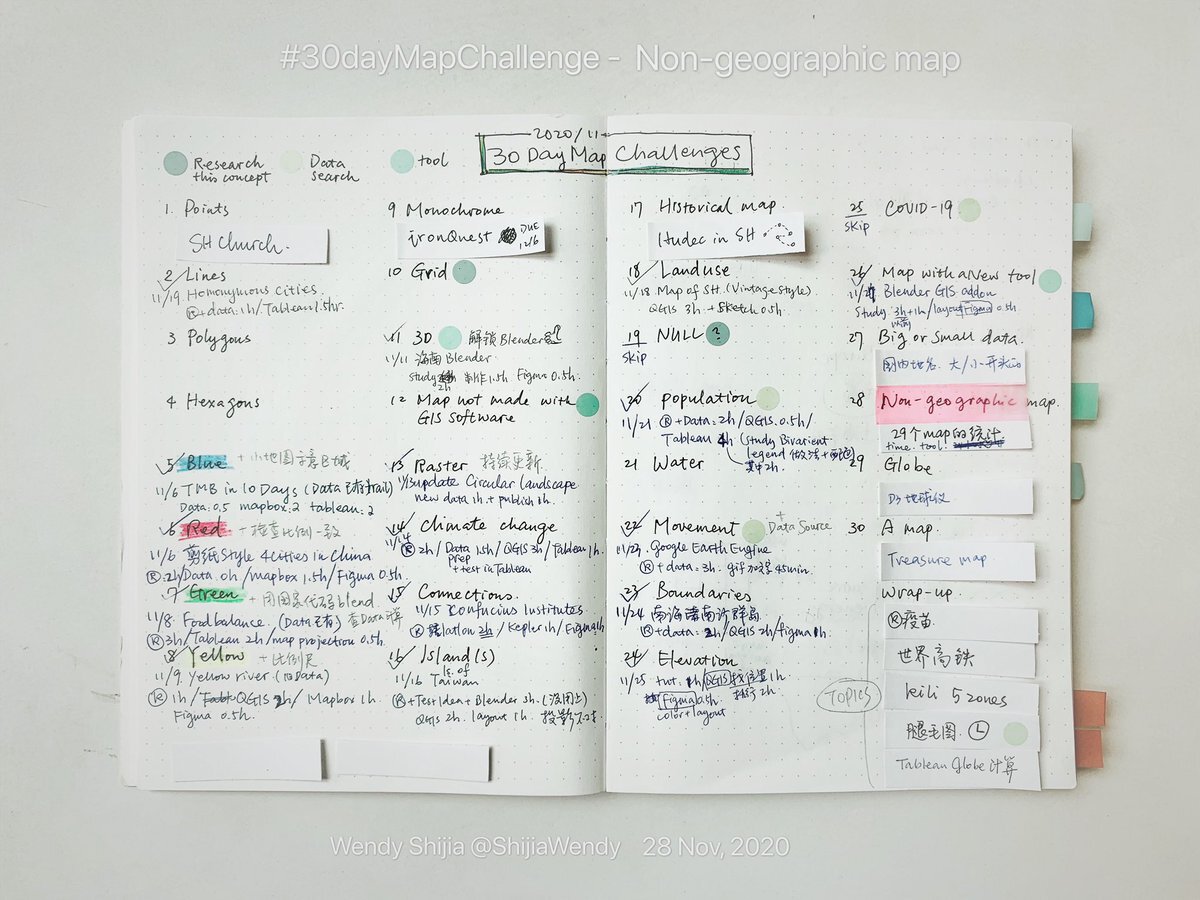 #30dayMapChallenge - Non-geographic map
2020/11
30 Day Map Challenges
Research this concept
Data search
tool
1. Points
SH Church.
2 Lines
11/19. Homonymous Cities.
Ⓡ+data: 1h/Tableau 1.5hr.
3 Polygons
4 Hexagons
5 Blue
11/6 TMB in 10 Days (Data已有trail)
Data: 0.5 mapbox: 2 tableau: 2
6 Red - 检查比例一致
11/6 剪纸Style 4cities in China
Ⓡ: 2h/Data 0h/mapbox 1.5h/Figma 0.5h.
7 Green + 用国家代码blend.
11/8 Food balance. (Data已有)
Ⓡ3h/Tableau 2h/map projection 0.5h.
8 Yellow + 比例尺
11/9 Yellow river (旧Data)
Ⓡ 1h/QGIS 2h/Mapbox 1h.
Figma 0.5h.
9 Monochrome
ironQuest DUE 12/6
10 Grid
11 3D 解锁Blender
11/11 海南Blender.
study 2h 制作1.5h Figma 0.5h.
12 Map not made with
GIS Software
13 Raster 持续更新
11/13 update Circular Landscape
new data 1h + publish 1h.
14 Climate change
11/14 Ⓡ 2h/Data prep 1.5h/QGIS 3h/Tableau 1h.
+ test in Tableau
15 Connections.
11/15 Confucius Institutes.
2h/Kepler 1h/Figma 1h
16 Island(s)
11/16 Is. of Taiwan
Ⓡ+Test Idea + Blender 3h. (没用上)
QGIS 2h. layout 1h.
17 Historical map
Hudec in SH
18 Landuse
11/18 Map of SH. (Vintage style)
QGIS 3h + Sketch 0.5h
19 NULL ?
skip
20 population
11/21 Ⓡ+Data: 2h/QGIS. 0.5h/
Tableau 4h (study Bivariant
legend 做法+配色
其中2h.
21 Water
22 Movement + Data Source
11/23. Google Earth Engine
Ⓡ+data: 3h. gif 加字 45min.
23 Boundaries
11/24 南海诸南沙群岛
Ⓡ+data: 2h/QGIS 2h/figma 1h.
24 Elevation
11/25 tut. 1h/QGIS 找位置 1h.
Figma 0.5h.
color + layout
25 COVID-19
skip
26 Map with a New tool
Blender GIS addon
Study 3h+1h/layout Figma 0.5h
27 Big or Small data.
国内地名. 大/小开头
28 Non-geographic map.
29个map的统计
time. tool.
29 Globe
D3 地球仪
30 A map.
Treasure map
Wrap-up.
Topics
Ⓡ疫苗
世界高铁
keili 5 zones
腿毛图. Ⓛ
Tableau Globe 计算
Wendy Shijia @ShijiaWendy 28 Nov, 2020